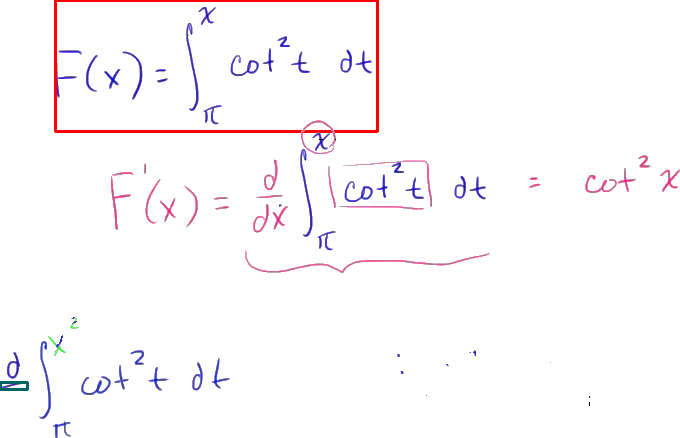 F(x) = ∫_π^x cot² t dt
F'(x) = d/dx ∫_π^x cot² t dt = cot² x
d ∫_π^{x²} cot² t dt